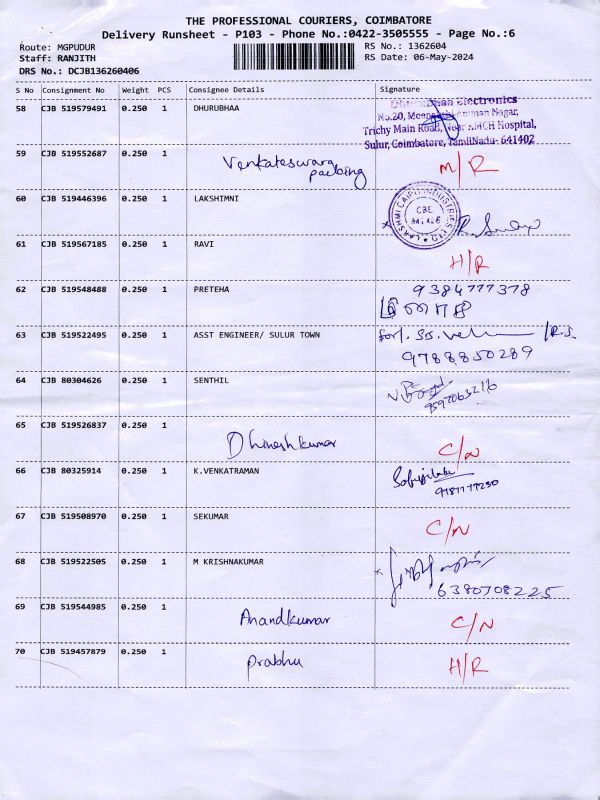 THE PROFESSIONAL COURIERS, COIMBATORE
Delivery Runsheet - P103 - Phone No.:0422-3505555 - Page No.:6
Route: MGPUDUR
Staff: RANJITH
DRS No.: DCJB136260406
RS No.: 1362604
RS Date: 06-May-2024
S No Consignment No Weight PCS Consignee Details Signature
58 CJB 519579491 0.250 1 DHURUBHAA
Electronics
No.20, Nagar,
Trichy Main Road, Near KMCH Hospital,
Sulur, Coimbatore, TamilNadu- 641402
59 CJB 519552687 0.250 1 Venkateswara packing M/R
60 CJB 519446396 0.250 1 LAKSHIMNI
CBE
61 CJB 519567185 0.250 1 RAVI H/R
62 CJB 519548488 0.250 1 PRETEHA 9384777378
63 CJB 519522495 0.250 1 ASST ENGINEER/ SULUR TOWN
9788850289
64 CJB 80304626 0.250 1 SENTHIL
65 CJB 519526837 0.250 1 Dhineshkumar C/N
66 CJB 80325914 0.250 1 K.VENKATRAMAN
67 CJB 519508970 0.250 1 SEKUMAR C/N
68 CJB 519522505 0.250 1 M KRISHNAKUMAR
6380708225
69 CJB 519544985 0.250 1 Anandkumar C/N
70 CJB 519457879 0.250 1 Prabhu H/R